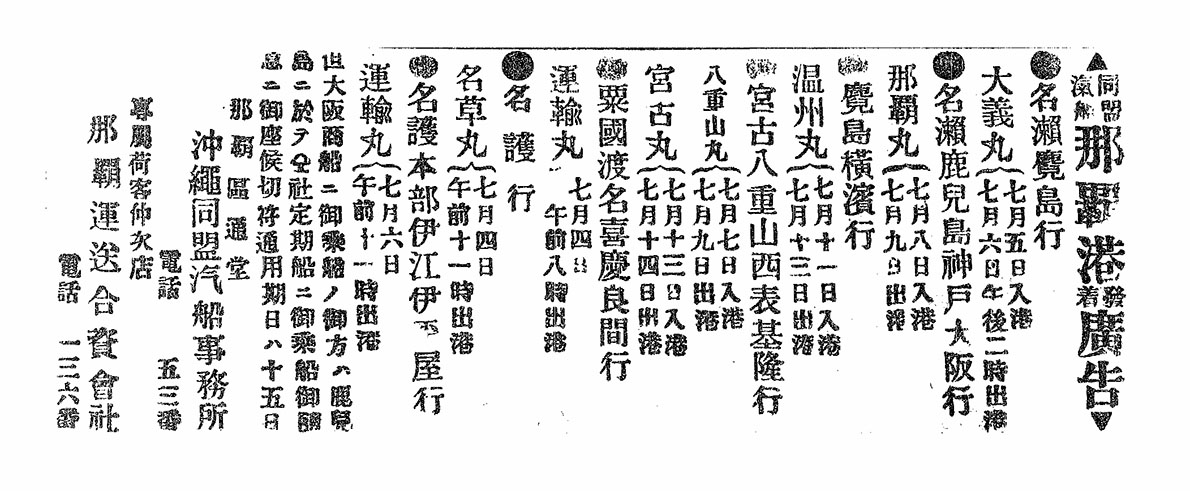 ▲同盟汽船那覇港發着廣告▼
●名瀨鹿兒島行
大義丸 七月五日入港
七月六日午後二時出港
●名瀨鹿兒島神戸大阪行
那覇丸 七月八日入港
七月九日出港
●鹿兒島橫濱行
温州丸 七月十一日入港
七月十三日出港
●宮古八重山西表基隆行
八重山丸 七月七日入港
七月九日出港
宮古丸 七月十三日入港
七月十四日出港
●粟國渡名喜慶良間行
運輸丸 七月四日
午前八時出港
●名護行
名草丸 七月四日
午前十一時出港
●名護本部伊江伊平屋行
運輸丸 七月六日
午前十一時出港
但大阪商船ニ御乘船ノ御方ハ鹿兒
島ニ於テ仝社定期船ニ御乘船御隨
意ニ御座候切符通用期日ハ十五日
那覇區通堂
沖繩同盟汽船事務所
電話 五三番
專屬荷客仲次店
那覇運送合資會社
電話 一二六番